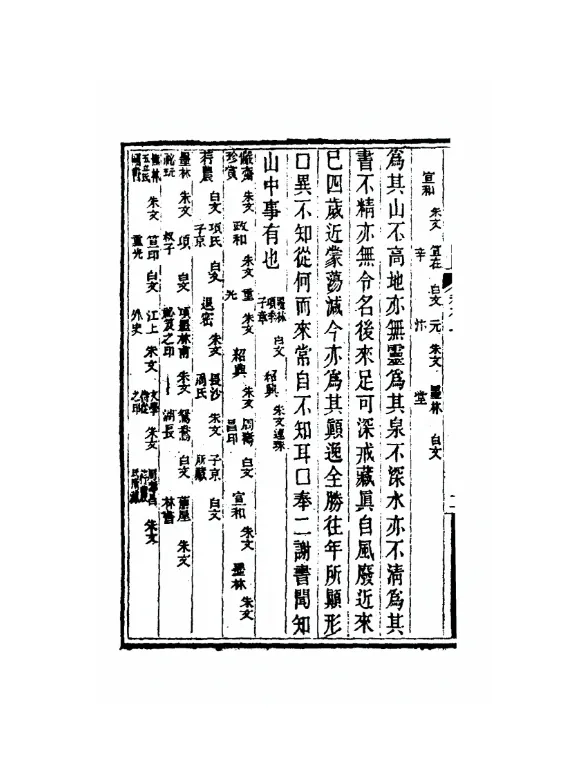 宣和 朱文 宣在辛 白文 元汴 朱文 墨林堂 白文
為其山不高地亦無靈為其泉不深水亦不清為其
書不精亦無令名後來足可深戒藏真自風廢近來
已四歲近蒙蕩減今亦為其顛逸全勝往年所顛形
口異不知從何而來常自不知耳口奉二謝書聞知
山中事有也 墨林項季子章 白文 紹興 朱文連珠
珍賞 朱文 政和 朱文 重光 朱文 紹興 朱文 昌印 白文 宣和 朱文 墨林 朱文
若農 白文 項氏子京 白文 退密 朱文 長沙 朱文 子京所藏 白文
墨林 朱文 項叔子 白文 項墨林甫之印 朱文 白文 林書 朱文
朱文 宣印 白文 江上外史 朱文 文學之印 朱文 朱文